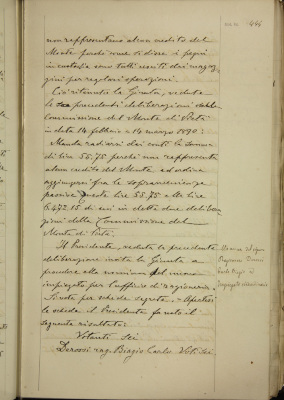 non rappresentano alcun credito del
Monte perché come si disse i pegni
in custodia sono tutti usciti dai magaz-
zini per regolari operazioni.
Ciò ritenuto la Giunta, vedute
le precedenti deliberazioni della
Commissione del Monte di Pietà
in data 14 febbraio e 14 marzo 1890:
Manda radiarsi dai conti la somma
di lire 55.75 perché non rappresenta
alcun credito del Monte, ed ordina
aggiungersi fra le sopravvenienze
passive queste lire 55.75 alle lire
di cui in dette due delibera-
zioni della Commissione del
Monte di Pietà.
Il Presidente, veduta la precedente
deliberazione invita la Giunta a
procedere alla nomina del nuovo
impiegato per l'ufficio di ragioneria.
Si vota per schede segrete. Apertesi
le schede il Presidente fa noto il
seguente risultato:
Votanti sei
Derossi rag. Biagio Carlo Voti sei
Nomina del
Ragioniere Derossi
Carlo Biagio